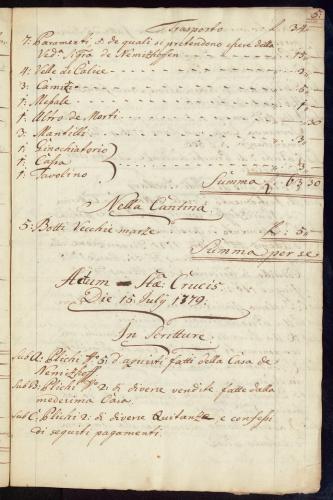 Trasporto f. 34.
7: Paramenti, 5 de quali si pretendono essere della
Ved.a Sig.ra de Nemizhofen 15.
4: Velle di Calice 2.
3: Camici
1: Messale 1.
1: Altro de Morti .30
3: Mantilli 3.
1: Ginochiatorio
1: Cassa
1: Tavolino
Summa f. 63.30
Nella Cantina
5: Botti Vecchie marze f. 5.
Summa per se
Actum Stæ Crucis
Die 15 July 1779.
In Scritture
Sub A: Plichi 5: d'aquisti fatti della Casa de
Nemizhoff
Sub B: Plichi 2: di diverse vendite fatte dalla
medesima Casa.
Sub C: Plichi 2: di diverse Quitanze e confessi
di seguiti pagamenti.